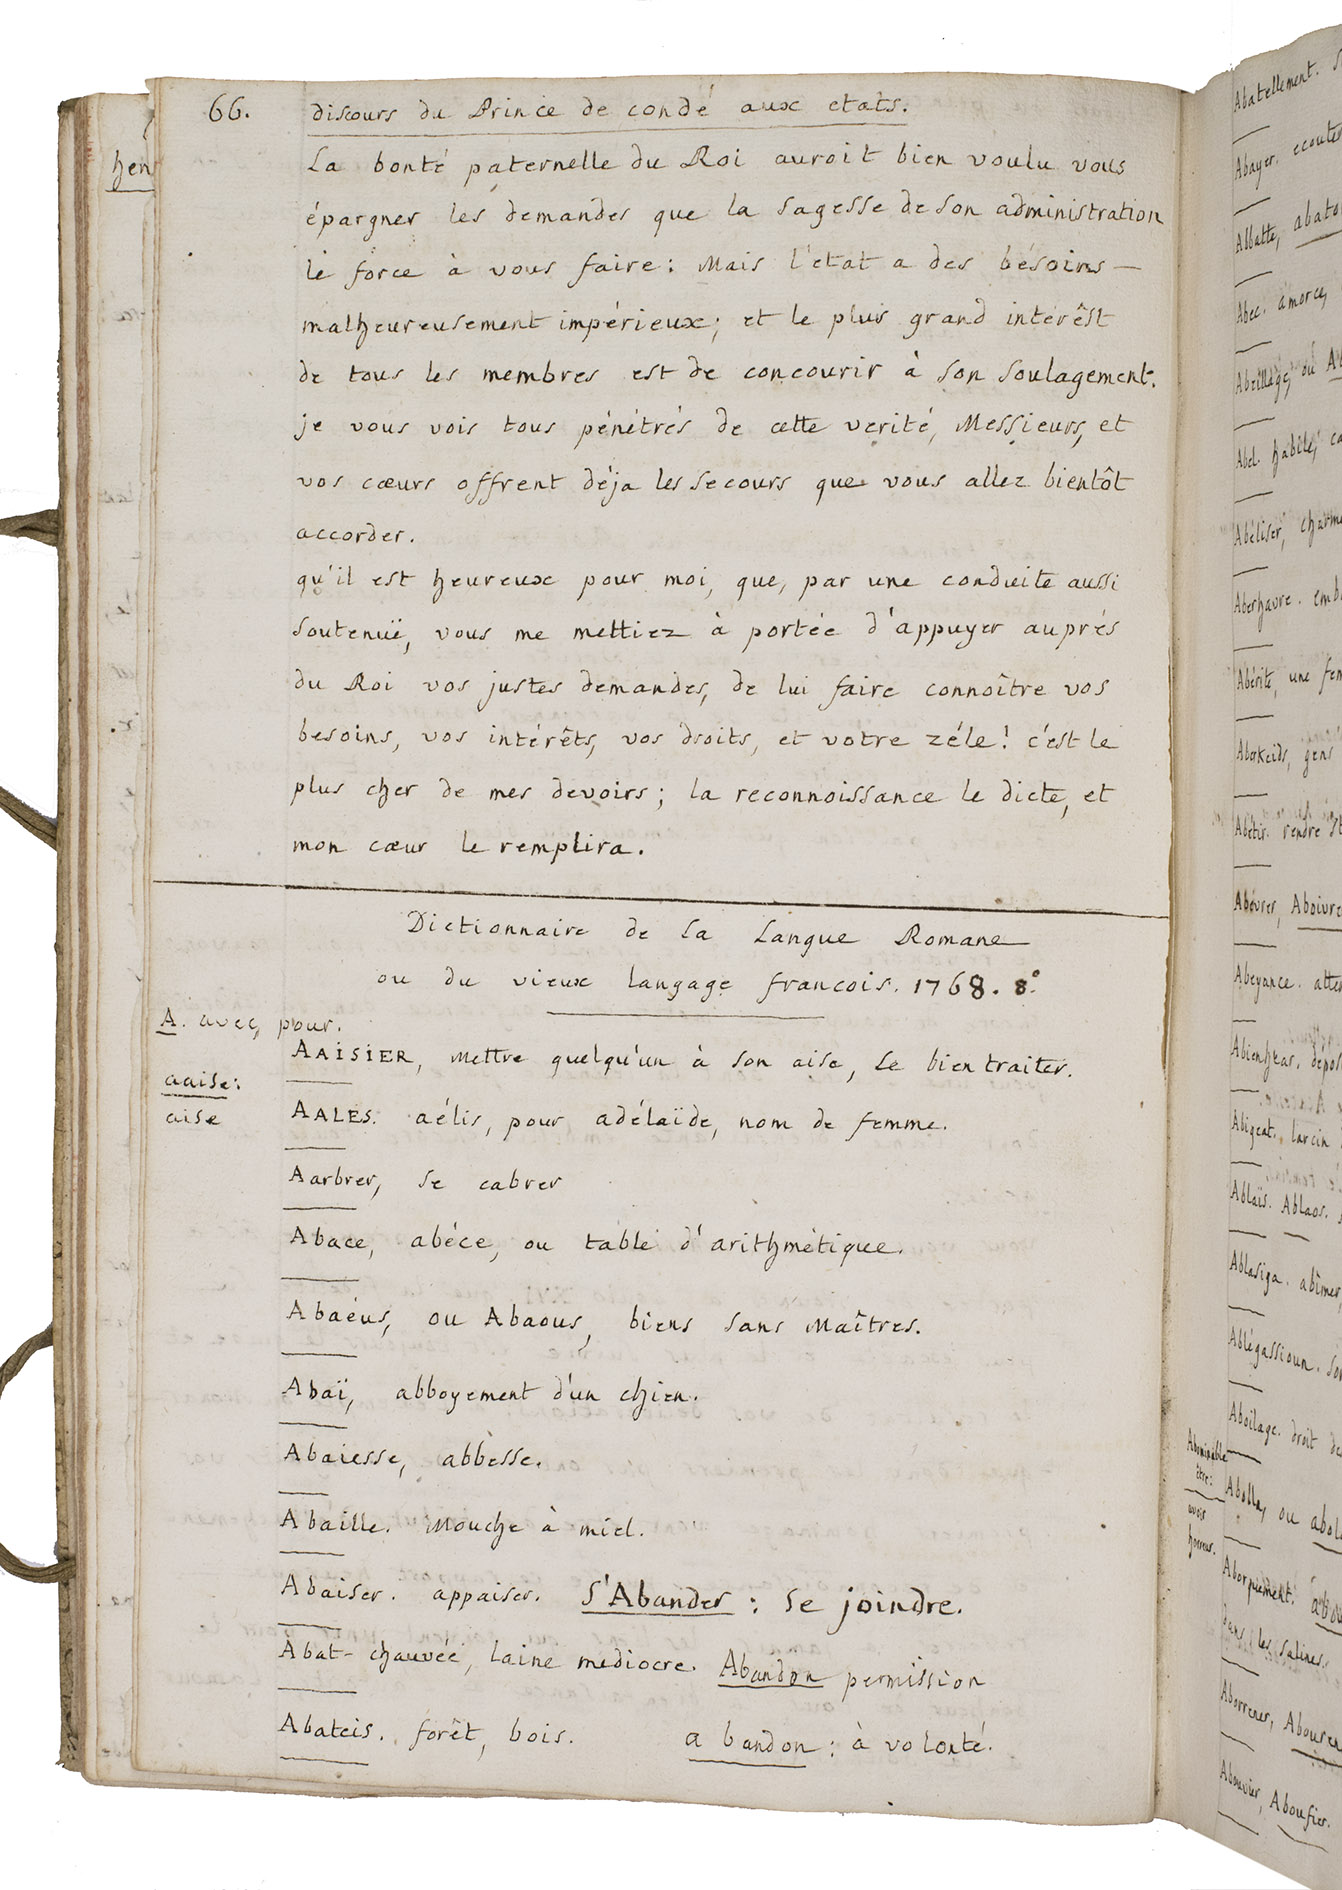 66. discours du Prince de condé aux etats.
La bonté paternelle du Roi auroit bien voulu vous
épargner les demandes que la sagesse de son administration
le force à vous faire : Mais l'etat a des bésoins —
malheureusement impérieux ; et le plus grand interêst
de tous les membres est de concourir à son soulagement.
je vous vois tous pénétrés de cette verité, Messieurs, et
vos cœurs offrent déja les secours que vous allez bientôt
accorder.
qu'il est heureux pour moi, que, par une conduite aussi
soutenuë, vous me mettiez à portée d'appuyer auprés
du Roi vos justes demandes, de lui faire connoître vos
besoins, vos intérêts, vos droits, et votre zéle ! c'est le
plus cher de mes devoirs ; la reconnoissance le dicte, et
mon cœur le remplira.
Dictionnaire de la Langue Romane
ou du vieux langage francois. 1768. 8.°
A. avec, pour.
AAISIER, mettre quelqu'un à son aise, le bien traiter.
aaise :
aise
AALES. aélis, pour adélaïde, nom de femme.
Aarbrer, se cabrer
Abace, abéce, ou table d'arithmétique.
Abaéus, ou Abaous, biens sans Maîtres.
Abaï, abboyement d'un chien.
Abaiesse, abbesse.
Abaille. Mouche à miel.
Abaiser. appaiser. S'Abander : se joindre.
Abat-chauvée, laine mediocre. Abandon permission
Abateis. forêt, bois. a bandon : à volonté.
hen
Abatellement.
Abayer. ecouter
Abatte, abato
Abec. amorce,
Abeillage, ou
Abel. habile,
Abéliser, charm
Aberhavre. emb
Abérite, une fem
Aberkeids, gens
Abétir. rendre
Abévrer, Aboivre
Abeyance. atten
Abienheur. depos
Abigeat. larcin
Ablaïs. Ablaos.
Ablasiga. abîmer
Ablégassioun. so
Aboilage. droit de
Abominable
être :
avoir
horreur.
Abolla, ou abol
dans les salines.
Aborrener, Abouren
Abouvier, Aboufier.